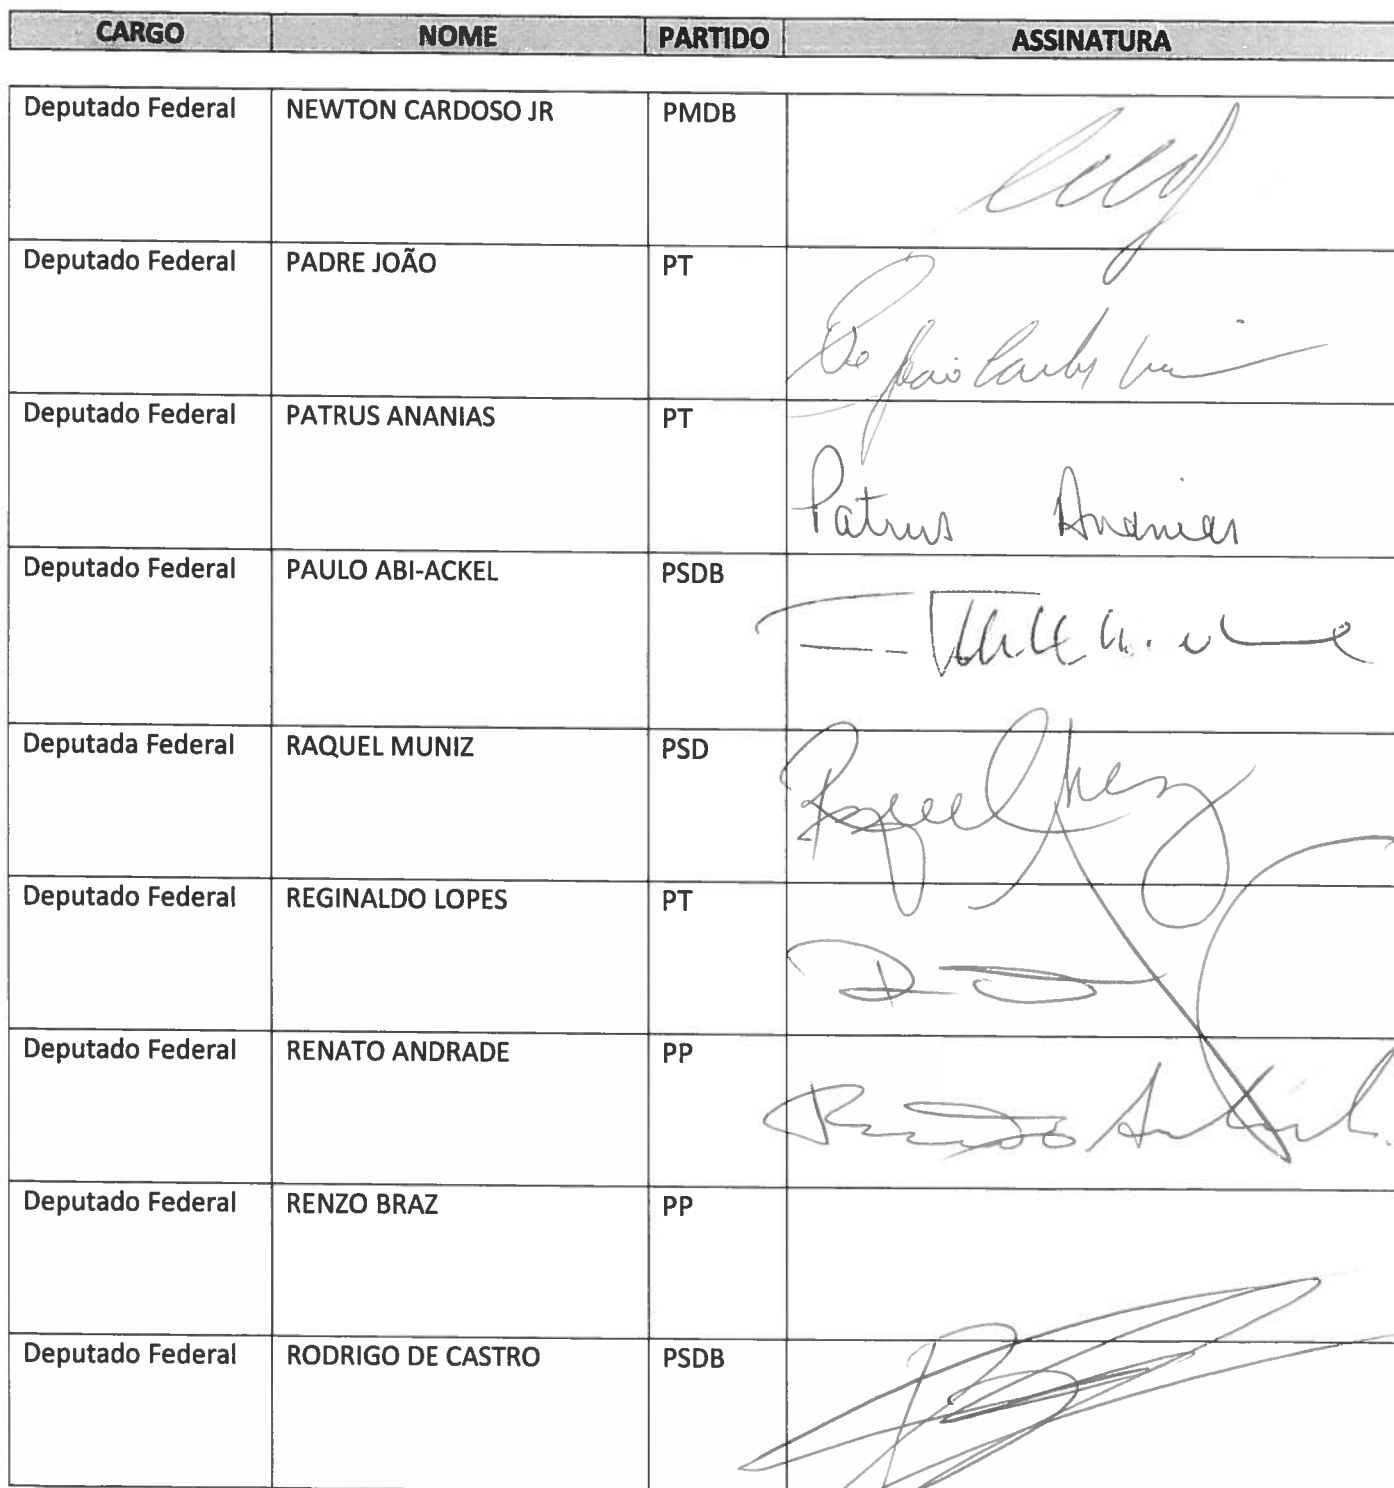 CARGO NOME PARTIDO ASSINATURA
Deputado Federal NEWTON CARDOSO JR PMDB
Deputado Federal PADRE JOÃO PT
Pe João Carlos
Deputado Federal PATRUS ANANIAS PT
Patrus Ananias
Deputado Federal PAULO ABI-ACKEL PSDB
Deputada Federal RAQUEL MUNIZ PSD
Raquel Muniz
Deputado Federal REGINALDO LOPES PT
Deputado Federal RENATO ANDRADE PP
Deputado Federal RENZO BRAZ PP
Deputado Federal RODRIGO DE CASTRO PSDB